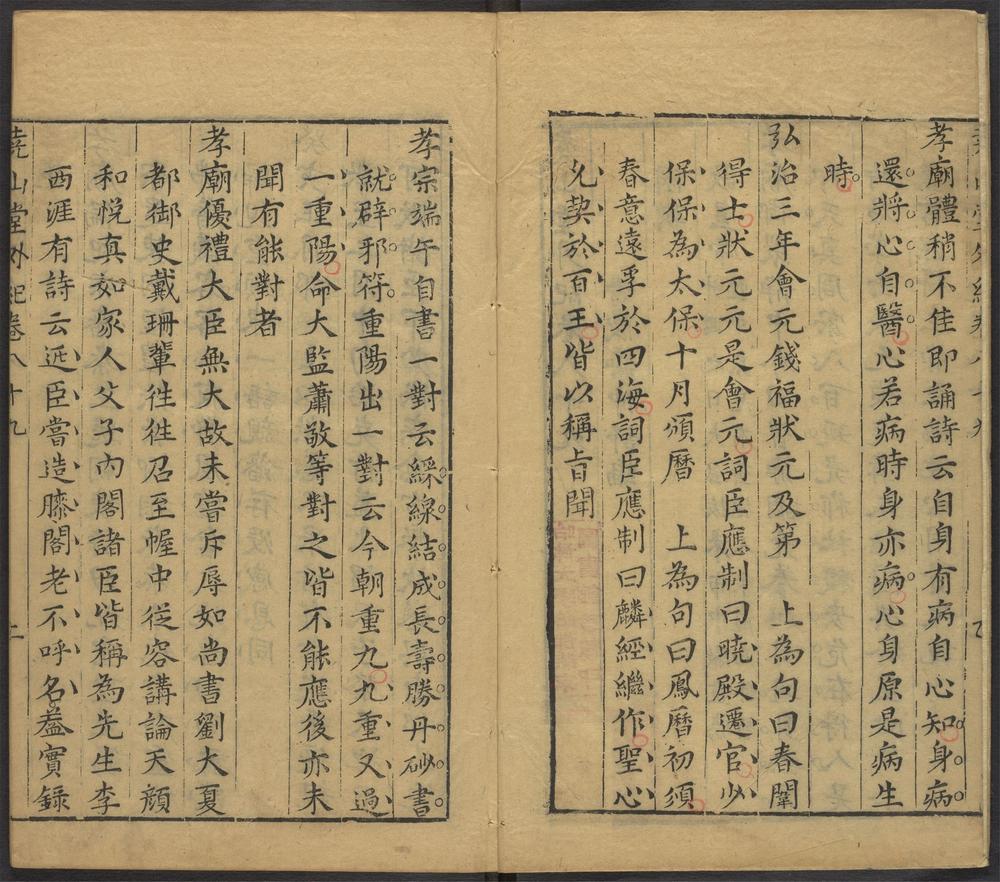 孝廟體稍不佳即誦詩云自身有病自心知身病
還將心自醫心若病時身亦病心身原是病生
時
弘治三年會元錢福狀元及第 上為句曰春闈
得士狀元元是會元詞臣應制曰曉殿遷官少
保保為太保十月頒曆 上為句曰鳳曆初須
春意遠孚於四海詞臣應制曰麟經繼作聖心
允契於百王皆以稱旨聞
孝宗端午自書一對云綵線結成長壽勝丹砂書
就辟邪符重陽出一對云今朝重九九重又過
一重陽命大監蕭敬等對之皆不能應後亦未
聞有能對者
孝廟優禮大臣無大故未嘗斥辱如尚書劉大夏
都御史戴珊輩徃徃召至幄中從容講論天顔
和悅真如家人父子內閣諸臣皆稱為先生李
西涯有詩云近臣嘗造膝閣老不呼名葢實錄
堯山堂外紀卷八十九 二